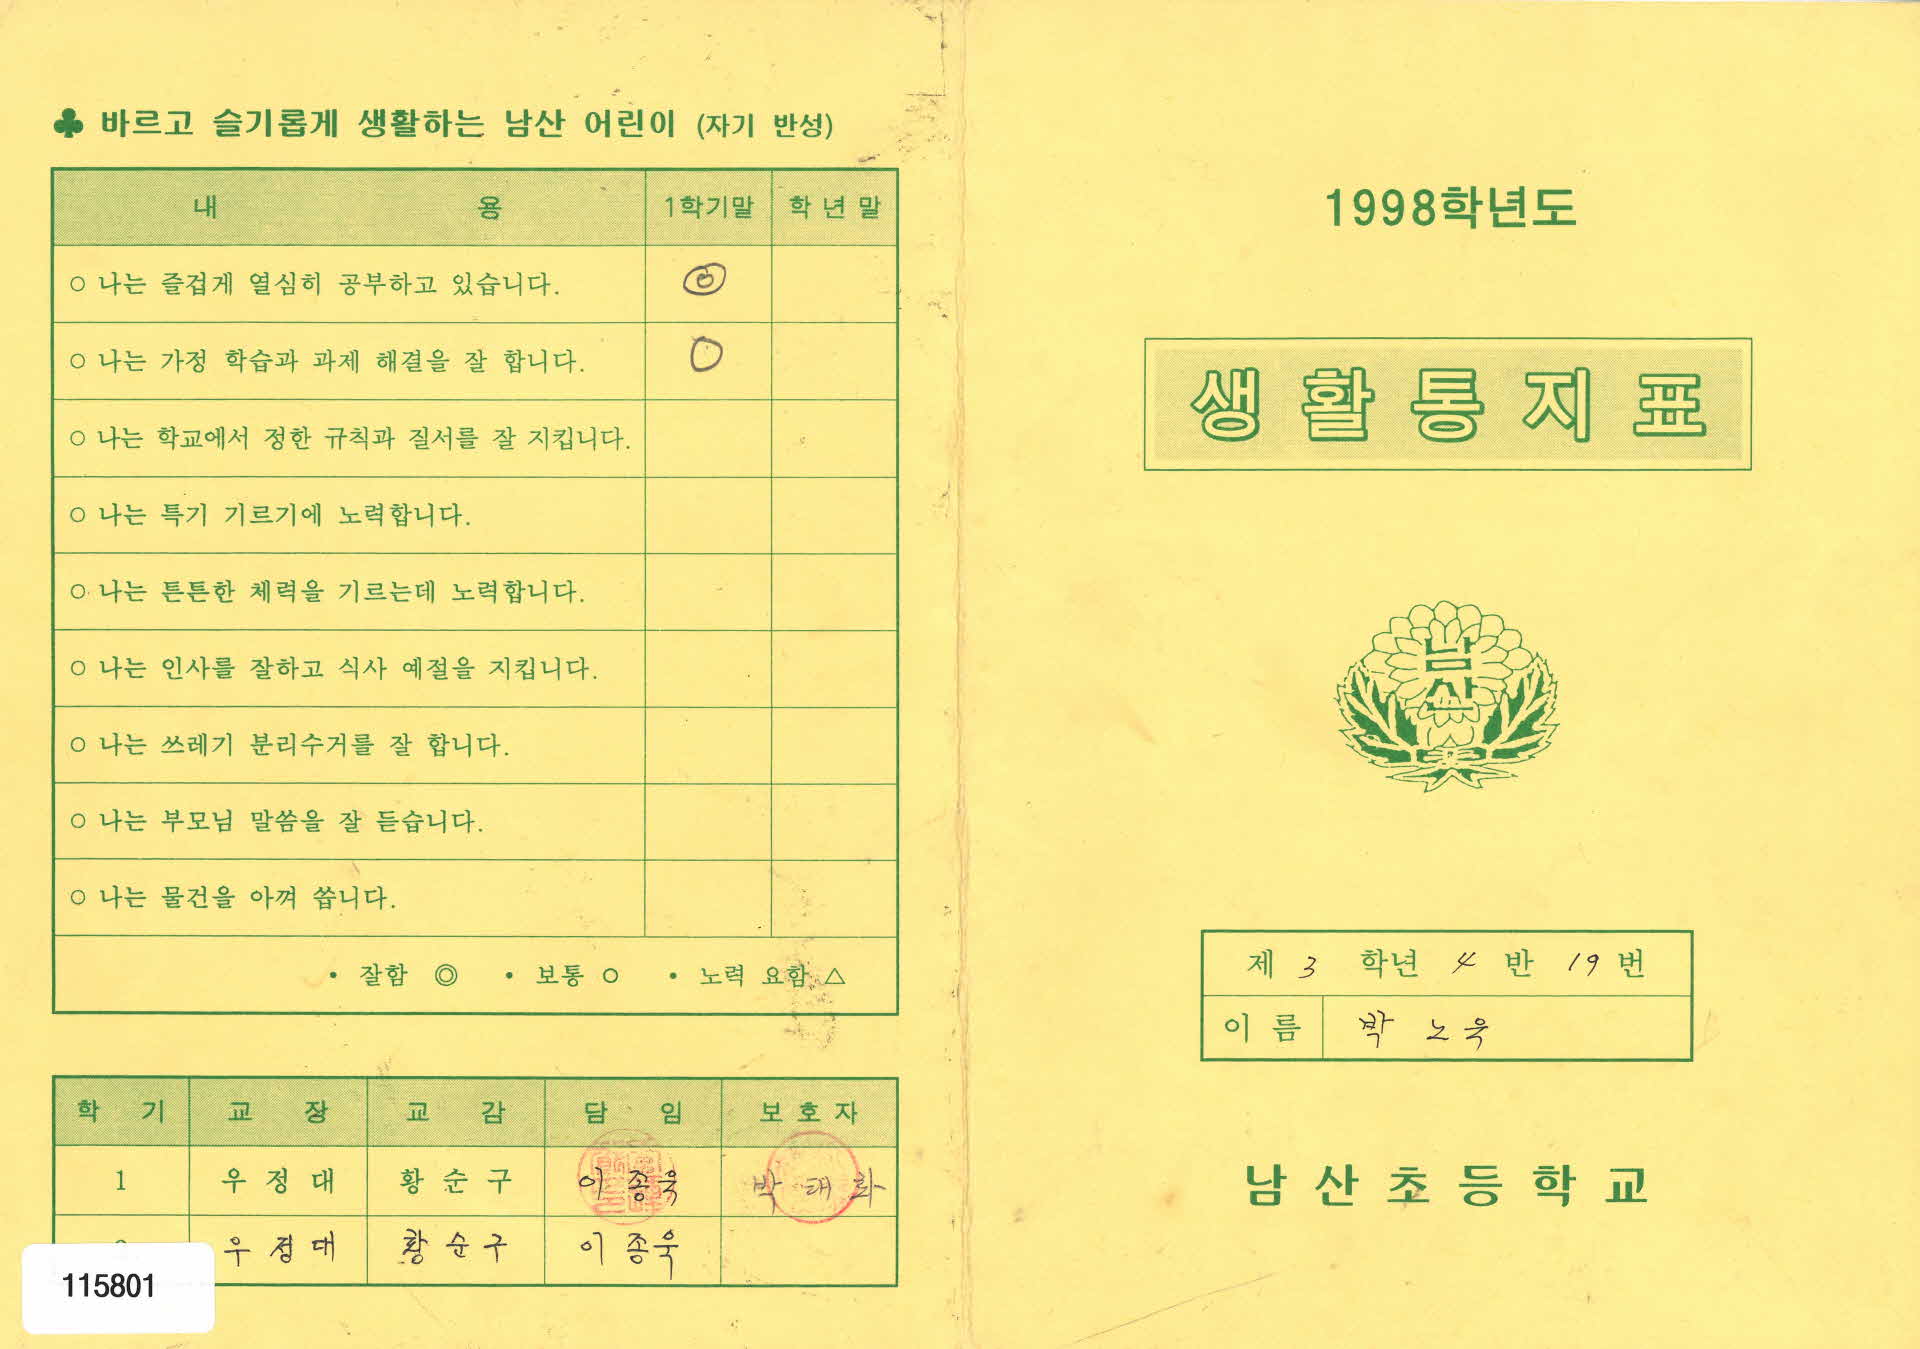 ♣ 바르고 슬기롭게 생활하는 남산 어린이 (자기 반성)
내 용 1학기말 학년말
○ 나는 즐겁게 열심히 공부하고 있습니다. ◎
○ 나는 가정 학습과 과제 해결을 잘 합니다. ○
○ 나는 학교에서 정한 규칙과 질서를 잘 지킵니다.
○ 나는 특기 기르기에 노력합니다.
○ 나는 튼튼한 체력을 기르는데 노력합니다.
○ 나는 인사를 잘하고 식사 예절을 지킵니다.
○ 나는 쓰레기 분리수거를 잘 합니다.
○ 나는 부모님 말씀을 잘 듣습니다.
○ 나는 물건을 아껴 씁니다.
• 잘함 ◎ • 보통 ○ • 노력 요함 △
학 기 교 장 교 감 담 임 보호자
1 우정대 황순구 이종욱 박태화
우정대 황순구 이종욱
115801
1998학년도
생활통지표
남산
제 3 학년 4 반 19 번
이름 박노욱
남산초등학교